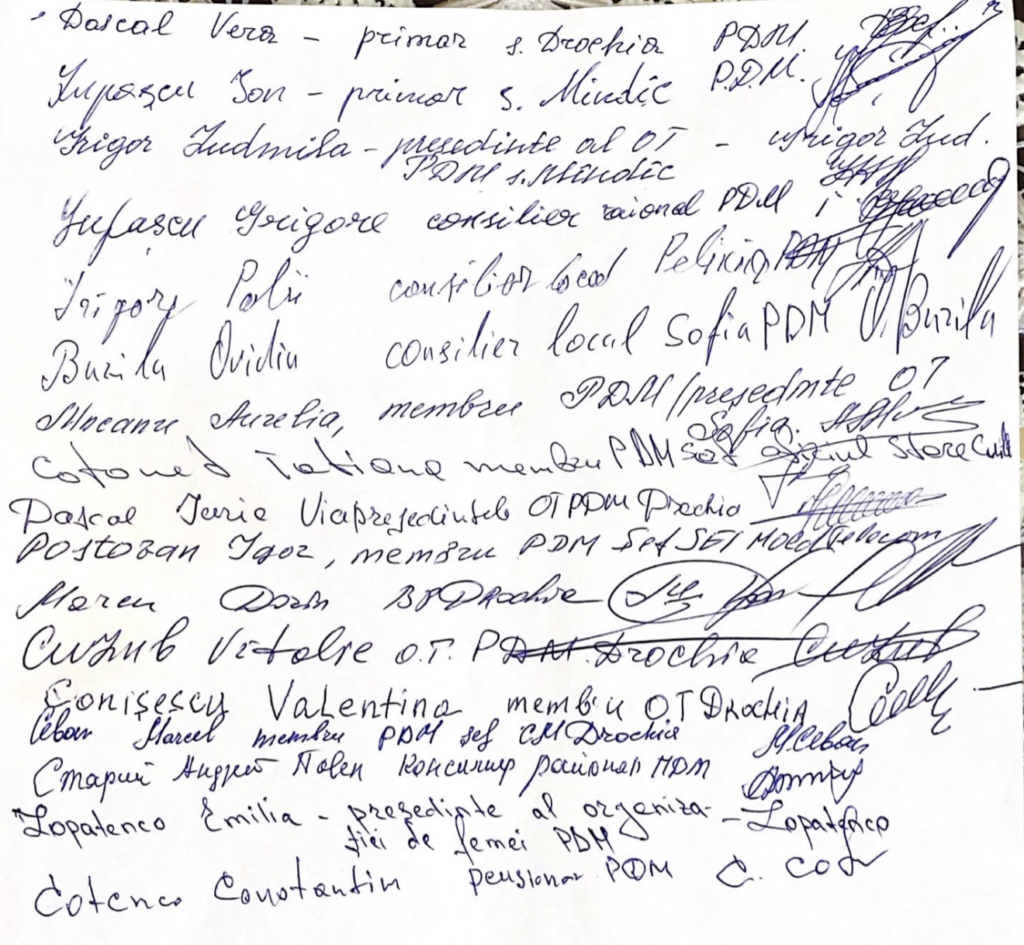 Dascal Vera - primar s. Drochia PDM.
Lupașcu Ion - primar s. Mindîc P.D.M.
Grigor Ludmila - președinte al OT - Grigor Lud.
PDM s. Mîndîc
Lupașcu Grigore consilier raional PDM
Grigore consilier local Pelinia PDM
Buzila Ovidiu consilier local Sofia PDM O. Buzila
Aurelia, membru PDM / președinte OT
Sofia.
Tatiana membru PDM
Dascal Iurie Vicepreședintele OT PDM Drochia
Postovan Igor, membru PDM Șef SEI Moldtelecom
Marcu Dorin Drochia
Vitalie O.T. PDM. Drochia
Conișescu Valentina membru OT Drochia
Ceban Marcel membru PDM șef CM Drochia M. Ceban
Старий Андрей Павел Консилир районал ПДМ
Lopatenco Emilia - președinte al organiza- - Lopatenco
ției de femei PDM
Cotenco Constantin pensionar PDM C. Cot